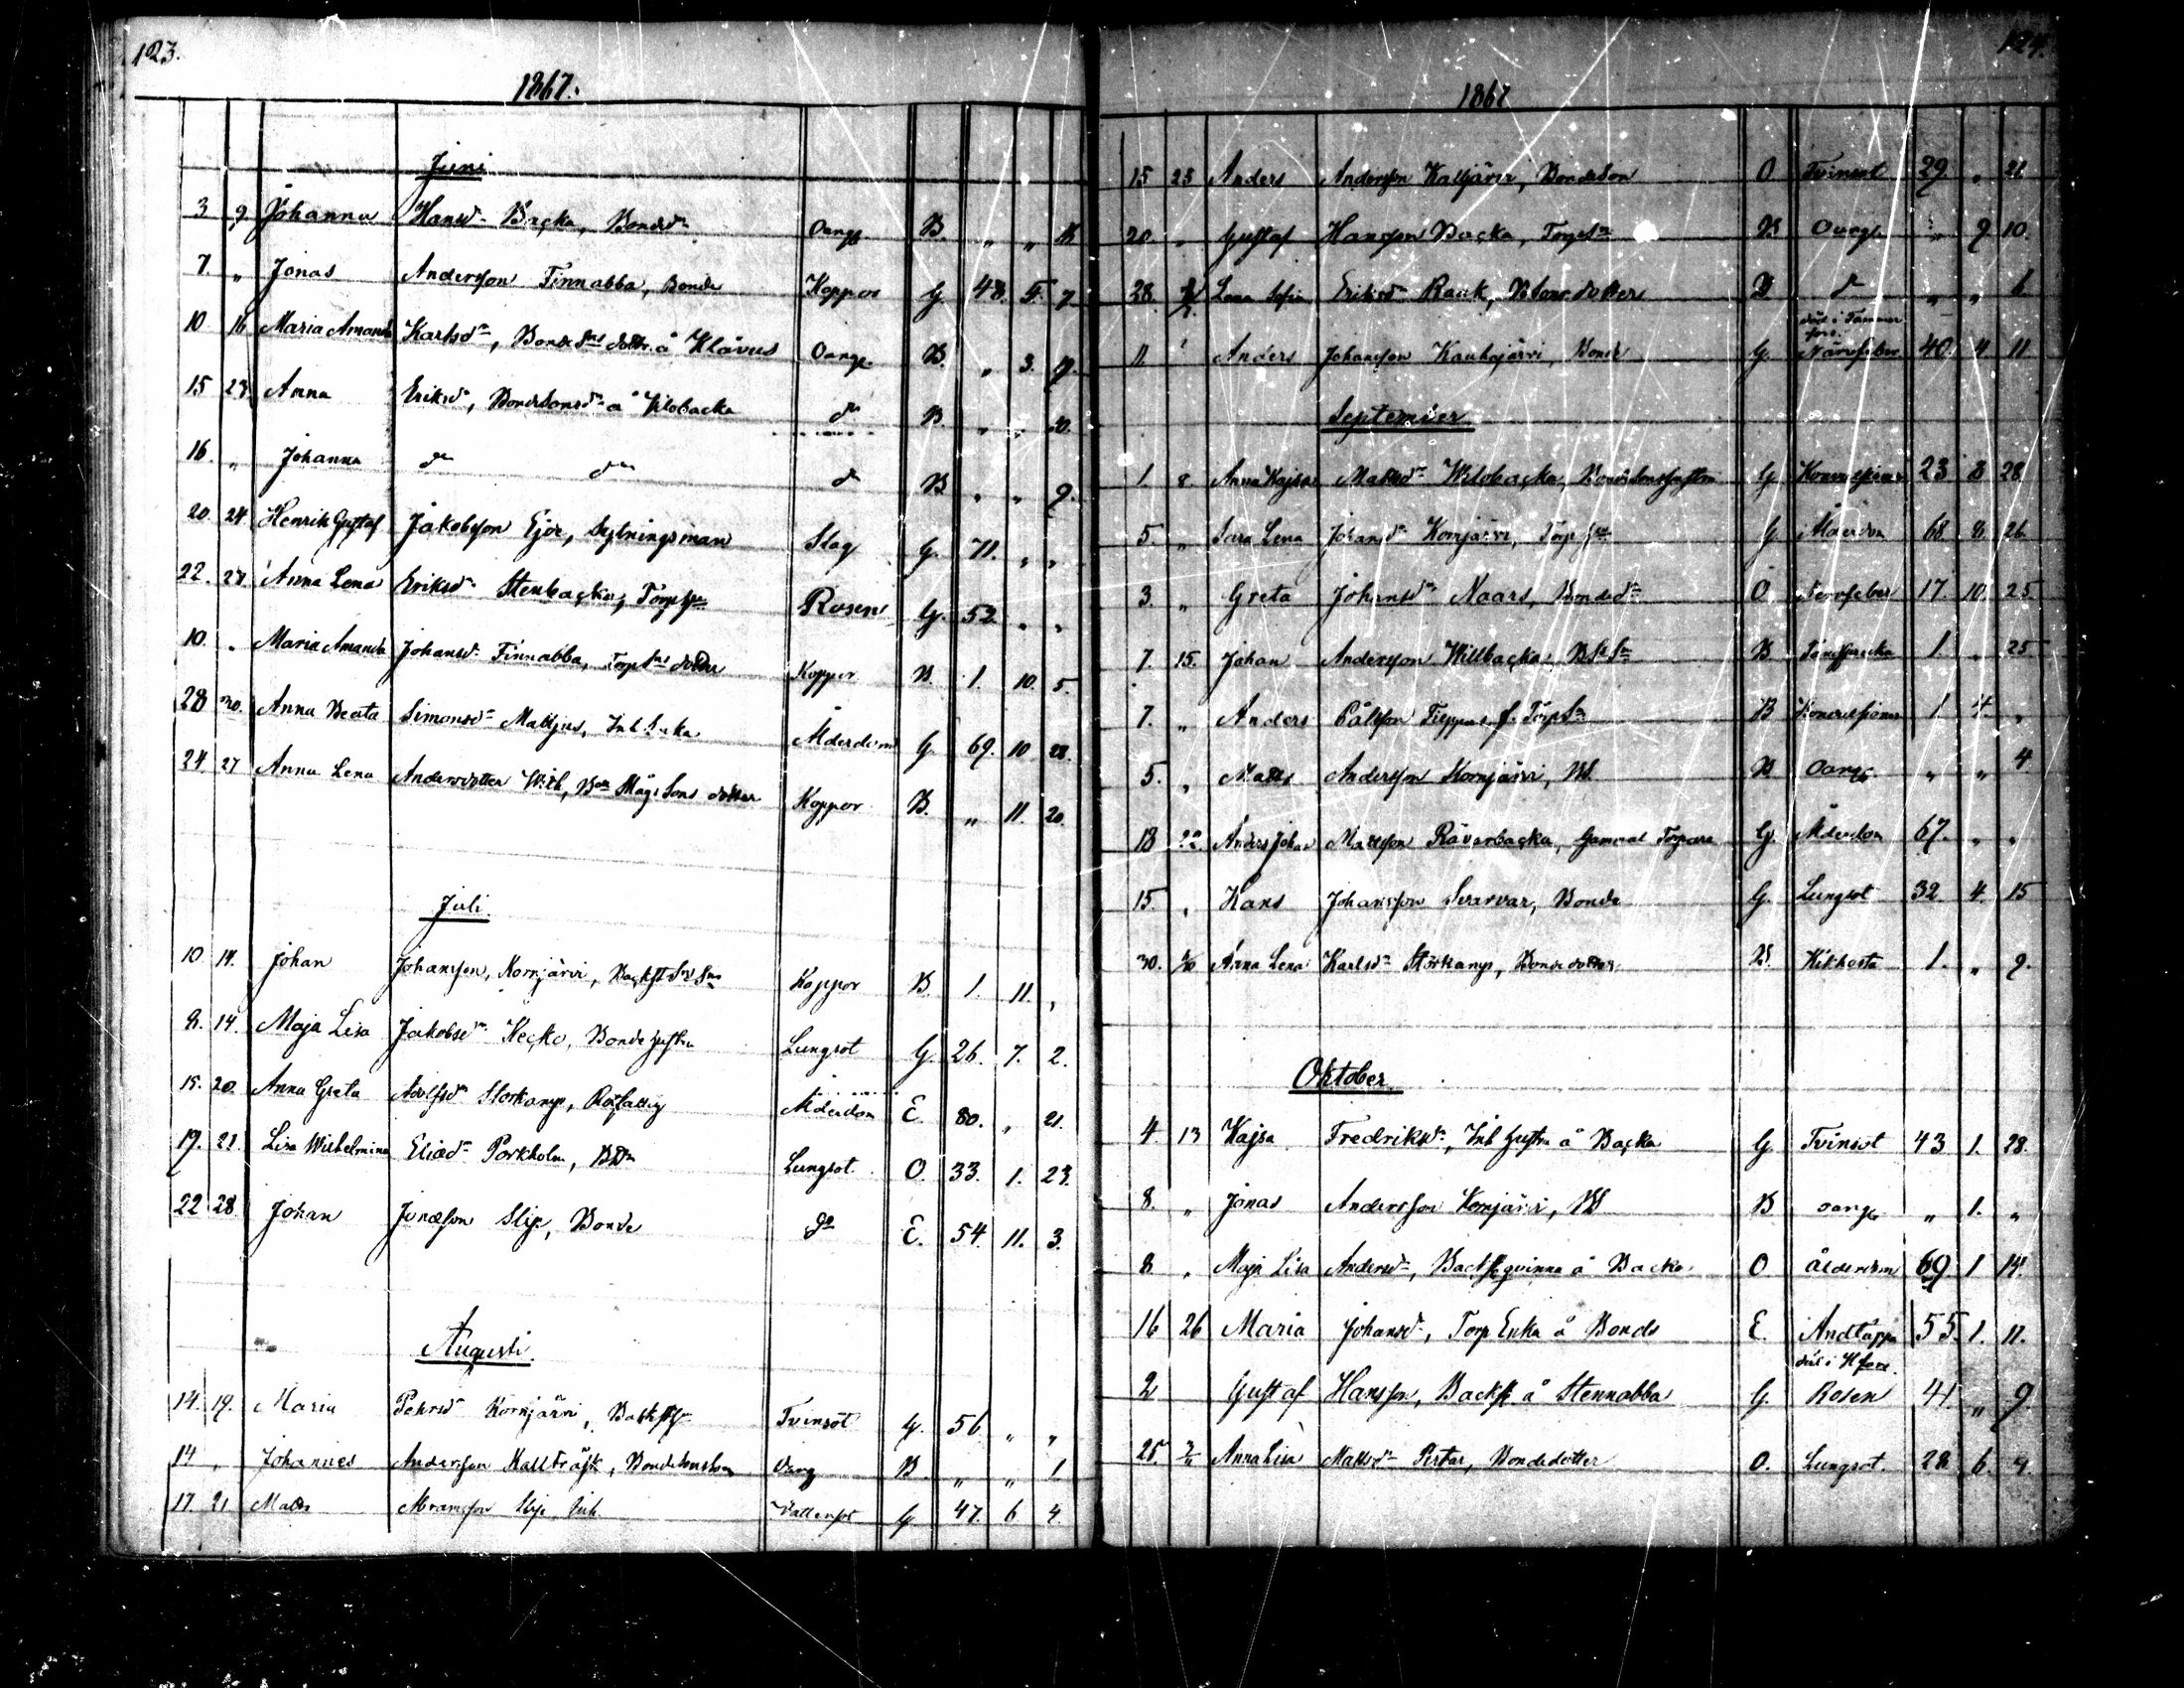 123.
1867.
Juni
3 9 Johanna Hansdr Backa, Bondedr Oangf B. " "
7. " Jonas Andersson Finnabba, Bonde Koppor G 48. 5. 7
10 16 Maria Amanda Karlsdr, Bondesns dottr å Klåvus Oangf B. " 3. 9.
15 23. Anna Eriksdr, Bondesonsdr å Wilobacka do B. " "
16. " Johanna do do do B " " 9.
20 24 Henrik Gustaf Jakobsson Ejor, Sytningsman Slag G. 71. " "
22. 27. Anna Lena Eriksdr Stenbacka, Torp Rosen G. 52. " "
10. " Maria Amanda Johansdr Finnabba, Torpsns dotter Koppor B. 1. 10. 5.
28 30. Anna Beata Simonsdr Mattjus, Inh. Enka Ålderdom G. 69. 10 28.
24. 27 Anna Lena Andersdotter Wilb, Bds Mågs Sons dotter Koppor B. " 11. 20.
Juli
10 14. Johan Johansson, Kornjärvi, Backst Sns Sn Koppor B. 1. 11. "
8. 14. Maja Lisa Jakobsdr Kecko, Bondehustru Lungsot G. 26. 7. 2.
15. 20. Anna Greta Adolfsdr Storkamp, Rotfattig Ålderdom E. 80. " 21.
19. 21. Lisa Wilhelmina Eliasdr Porkholm, BDr Lungsot O. 33. 1. 23.
22 28. Johan Jonasson Slip, Bonde do E. 54. 11. 3.
Augusti.
14. 19. Maria Pehrsdr Kornjärvi, Backst Tvinsot G. 56 " "
14 " Johannes Andersson Kallträsk, Bondesonson Oang B " " 1
17. 21. Matts Abramsson Slip Inh. Vattensot G 47. 6 4.
124.
1867
15 25 Anders Andersson Kalljärvi, Bondeson O Tvinsot 29. " 21.
20. " Gustaf Hansson Backa, Torpsn B Oangf " 9 10.
28. Lena Sofia Eriksdr Rauk, Bdotter B do " " 6.
död i Tammerfors.
11. " Anders Johansson Kauhajärvi, Bonde G. Nervfeber 40. 4 11
September
1. 8. Anna Kajsa Mattsdr Wilobacka, Bondesonshustru G Konvulsioner 23 8 28
5. " Sara Lena Johansdr Kornjärvi, Torp G. Ålderdom 68. 8. 26.
3. " Greta Johansdr Naars, Bondedr O. Nervfeber 17. 10. 25
7. 15. Johan Andersson Willbacka B Tandsprickn 1. " 25
7. " Anders Pålsson Fieppus f. Torpsn B Konvulsioner 1. 4. "
5. " Matts Andersson Kornjärvi, BS. B Oangf. " " 4.
18 22. Anders Johan Mattsson Räverbacka, Gammal Torpare G. Ålderdom 67. " "
15. " Hans Johansson Svarvar, Bonde G. Lungsot 32 4. 15
30. 6/10 Anna Lena Karlsdr Storkamp, Bondedotter B. Kikhosta 1. " 9.
Oktober
4. 13 Kajsa Fredriksdr, Inh hustru å Backa G. Tvinsot 43 1. 28.
8. " Jonas Andersson Kornjärvi, BS B oangf " 1. "
8. " Maja Lisa Andersdr, Backstqvinna å Backa O ålderdom 69. 1 14.
16 26 Maria Johansdr, Torp Enka å Bonds E. Andtäppa 55. 1. 11.
död i Hfors.
2 Gustaf Hansson, Backst. å Stennabba G. Rosen 41. " 9.
25. Anna Lisa Mattsdr Pertar, Bondedotter O. Lungsot. 28 6. 4.